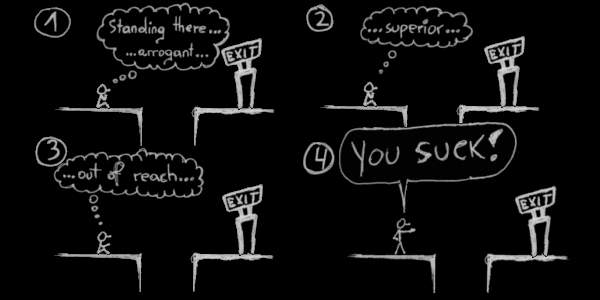 1
Standing there...
...arrogant...
EXIT
2
...superior...
EXIT
3
...out of reach...
EXIT
4
You suck!
EXIT